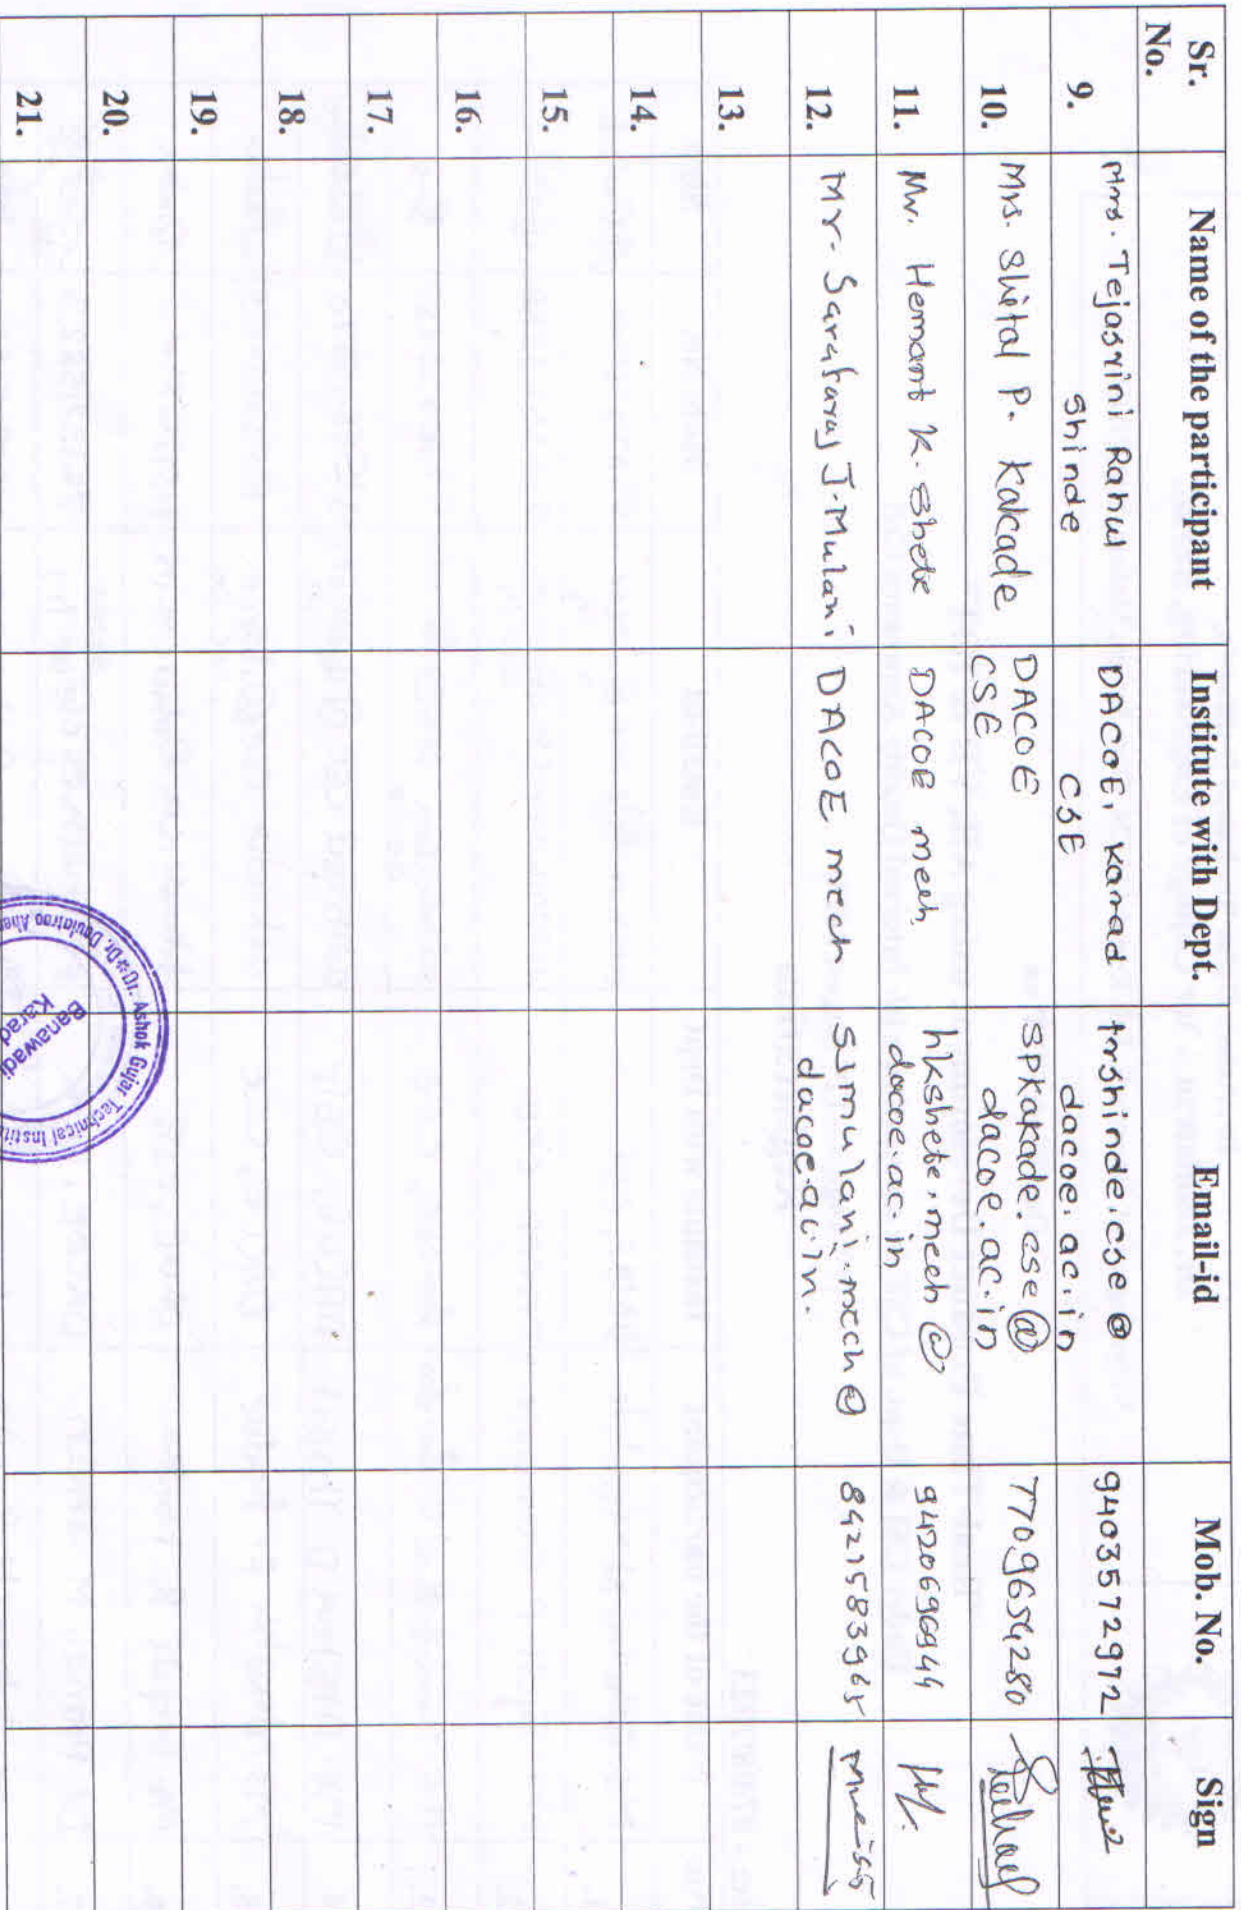 Sr. No.
Name of the participant
Institute with Dept.
Email-id
Mob. No.
Sign
9.
Mrs. Tejasvini Rahul
Shinde
DACOE, Karad
CSE
trshinde.cse@
dacoe.ac.in
9403572972
10.
Mrs. Shital P. Kakade
DACOE
CSE
spkakade.cse@
dacoe.ac.in
7709654280
11.
Mr. Hemant K. Shete
DACOE mech.
hkshete.mech@
dacoe.ac.in
9420696944
12.
Mr. Sarafaraj J. Mulani
DACOE mech
sjmulani.mech@
dacoe.ac.in.
8421583965
13.
14.
15.
16.
17.
18.
19.
20.
21.
Dr. Ashok Gujar Technical
Dr. Daulatrao
Banawadi
Karad